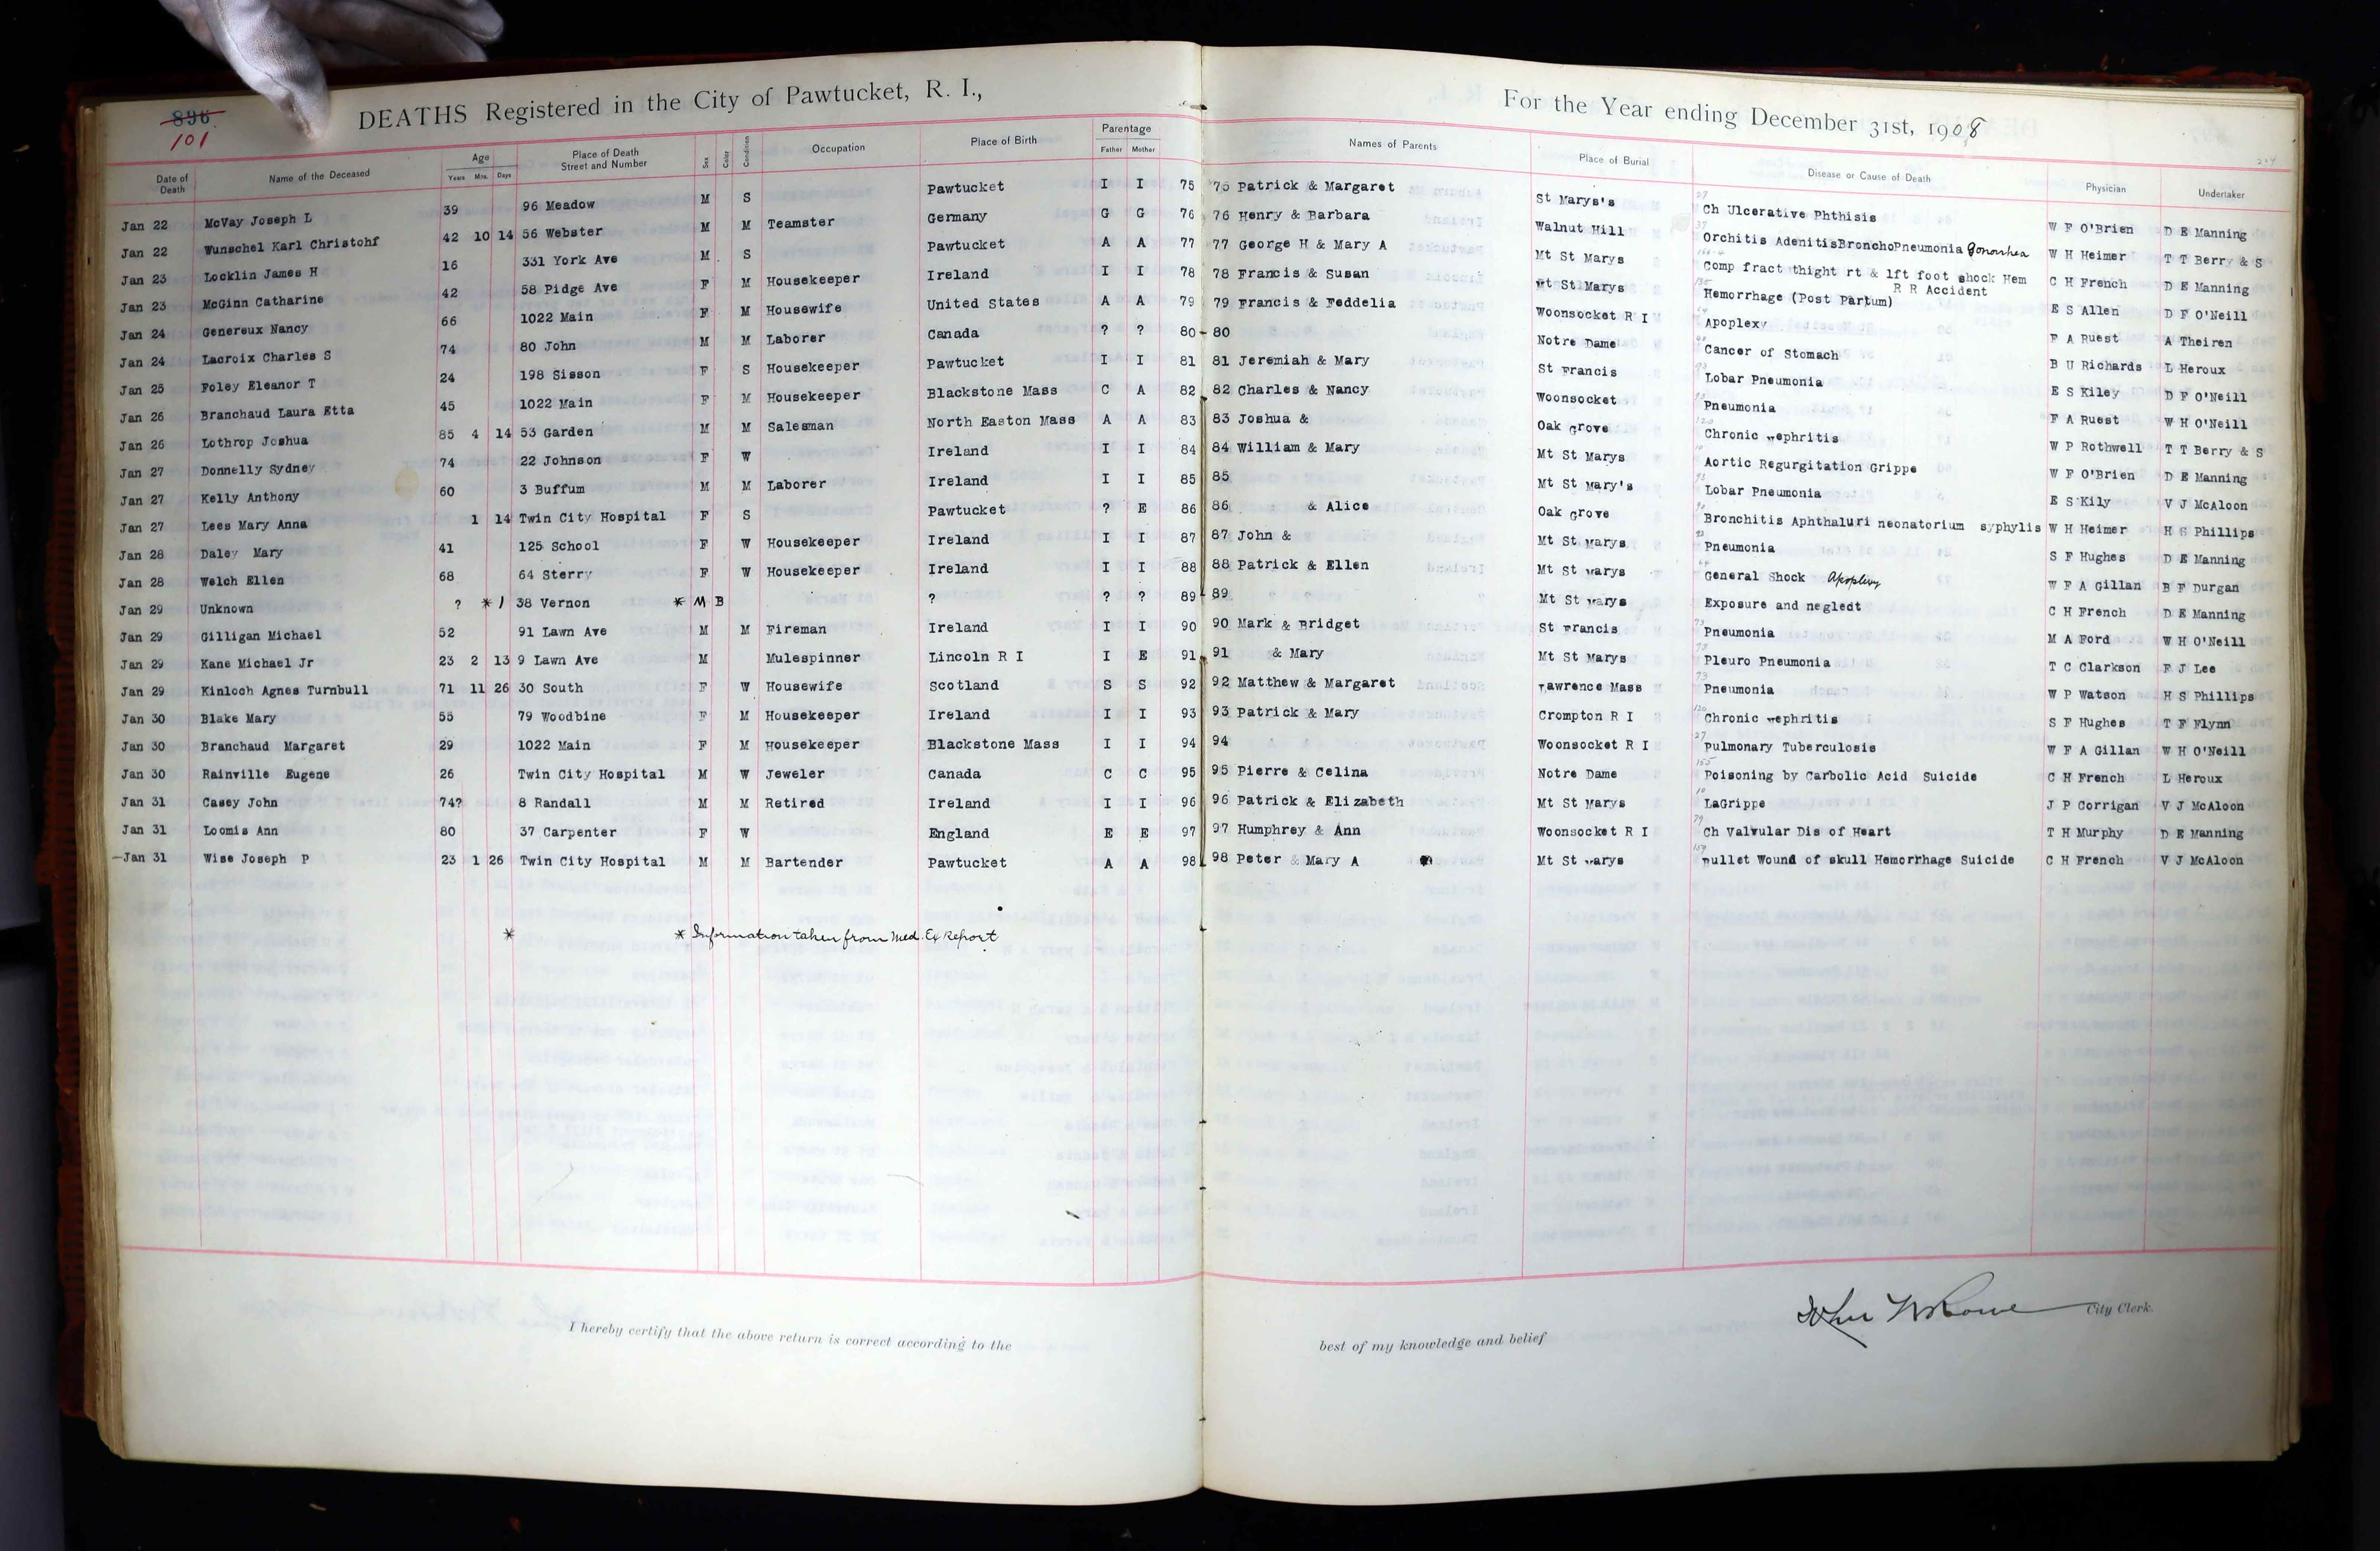 896
101
DEATHS Registered in the City of Pawtucket, R. I.,
For the Year ending December 31st, 1908
Date of Death Name of the Deceased Age Years Mos. Days Place of Death Street and Number Sex Color Condition Occupation Place of Birth Parentage Father Mother Names of Parents Place of Burial Disease or Cause of Death Physician Undertaker
Jan 22 McVay Joseph L 39 96 Meadow M S Pawtucket I I 75 75 Patrick & Margaret St Marys's 27 Ch Ulcerative Phthisis W F O'Brien D E Manning
Jan 22 Wunschel Karl Christohf 42 10 14 56 Webster M M Teamster Germany G G 76 76 Henry & Barbara Walnut Hill 37 Orchitis AdenitisBronchoPneumonia Gonorrhea W H Heimer T T Berry & S
Jan 23 Locklin James H 16 331 York Ave M S Pawtucket A A 77 77 George H & Mary A Mt St Marys Comp fract thight rt & lft foot shock Hem R R Accident C H French D E Manning
Jan 23 McGinn Catharine 42 58 Pidge Ave F M Housekeeper Ireland I I 78 78 Francis & Susan Mt St Marys Hemorrhage (Post Partum) E S Allen D F O'Neill
Jan 24 Genereux Nancy 66 1022 Main F M Housewife United States A A 79 79 Francis & Feddelia Woonsocket R I 64 Apoplexy F A Ruest A Theiren
Jan 24 Lacroix Charles S 74 80 John M M Laborer Canada ? ? 80 80 Notre Dame 40 Cancer of Stomach B U Richards L Heroux
Jan 25 Foley Eleanor T 24 198 Sisson F S Housekeeper Pawtucket I I 81 81 Jeremiah & Mary St Francis Lobar Pneumonia E S Kiley D F O'Neill
Jan 26 Branchaud Laura Etta 45 1022 Main F M Housekeeper Blackstone Mass C A 82 82 Charles & Nancy Woonsocket Pneumonia F A Ruest W H O'Neill
Jan 26 Lothrop Joshua 85 4 14 53 Garden M M Salesman North Easton Mass A A 83 83 Joshua & Oak Grove 120 Chronic Nephritis W P Rothwell T T Berry & S
Jan 27 Donnelly Sydney 74 22 Johnson F W Ireland I I 84 84 William & Mary Mt St Marys 10 Aortic Regurgitation Grippe W F O'Brien D E Manning
Jan 27 Kelly Anthony 60 3 Buffum M M Laborer Ireland I I 85 85 Mt St Mary's Lobar Pneumonia E S Kily V J McAloon
Jan 27 Lees Mary Anna 1 14 Twin City Hospital F S Pawtucket ? E 86 86 & Alice Oak Grove 90 Bronchitis Aphthaluri neonatorium syphylis W H Heimer H S Phillips
Jan 28 Daley Mary 41 125 School F W Housekeeper Ireland I I 87 87 John & Mt St Marys Pneumonia S F Hughes D E Manning
Jan 28 Welch Ellen 68 64 Sterry F W Housekeeper Ireland I I 88 88 Patrick & Ellen Mt St Marys 64 General Shock Apoplexy W F A Gillan B F Durgan
Jan 29 Unknown ? * 1 38 Vernon * M B ? ? ? 89 89 Mt St Marys Exposure and neglect C H French D E Manning
Jan 29 Gilligan Michael 52 91 Lawn Ave M M Fireman Ireland I I 90 90 Mark & Bridget St Francis 93 Pneumonia M A Ford W H O'Neill
Jan 29 Kane Michael Jr 23 2 13 9 Lawn Ave M Mulespinner Lincoln R I I E 91 91 & Mary Mt St Marys 93 Pleuro Pneumonia T C Clarkson F J Lee
Jan 29 Kinloch Agnes Turnbull 71 11 26 30 South F W Housewife Scotland S S 92 92 Matthew & Margaret Lawrence Mass 93 Pneumonia W P Watson H S Phillips
Jan 30 Blake Mary 55 79 Woodbine F M Housekeeper Ireland I I 93 93 Patrick & Mary Crompton R I 120 Chronic Nephritis S F Hughes T F Flynn
Jan 30 Branchaud Margaret 29 1022 Main F M Housekeeper Blackstone Mass I I 94 94 Woonsocket R I 27 Pulmonary Tuberculosis W F A Gillan W H O'Neill
Jan 30 Rainville Eugene 26 Twin City Hospital M W Jeweler Canada C C 95 95 Pierre & Celina Notre Dame 155 Poisoning by Carbolic Acid Suicide C H French L Heroux
Jan 31 Casey John 74? 8 Randall M M Retired Ireland I I 96 96 Patrick & Elizabeth Mt St Marys 10 LaGrippe J P Corrigan V J McAloon
Jan 31 Loomis Ann 80 37 Carpenter F W England E E 97 97 Humphrey & Ann Woonsocket R I 79 Ch Valvular Dis of Heart T H Murphy D E Manning
Jan 31 Wise Joseph P 23 1 26 Twin City Hospital M M Bartender Pawtucket A A 98 98 Peter & Mary A Mt St Marys 159 Bullet Wound of skull Hemorrhage Suicide C H French V J McAloon
* * Information taken from Med. Ex Report
I hereby certify that the above return is correct according to the best of my knowledge and belief
City Clerk.